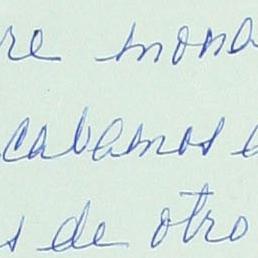 re mona
cabamos
s de otro